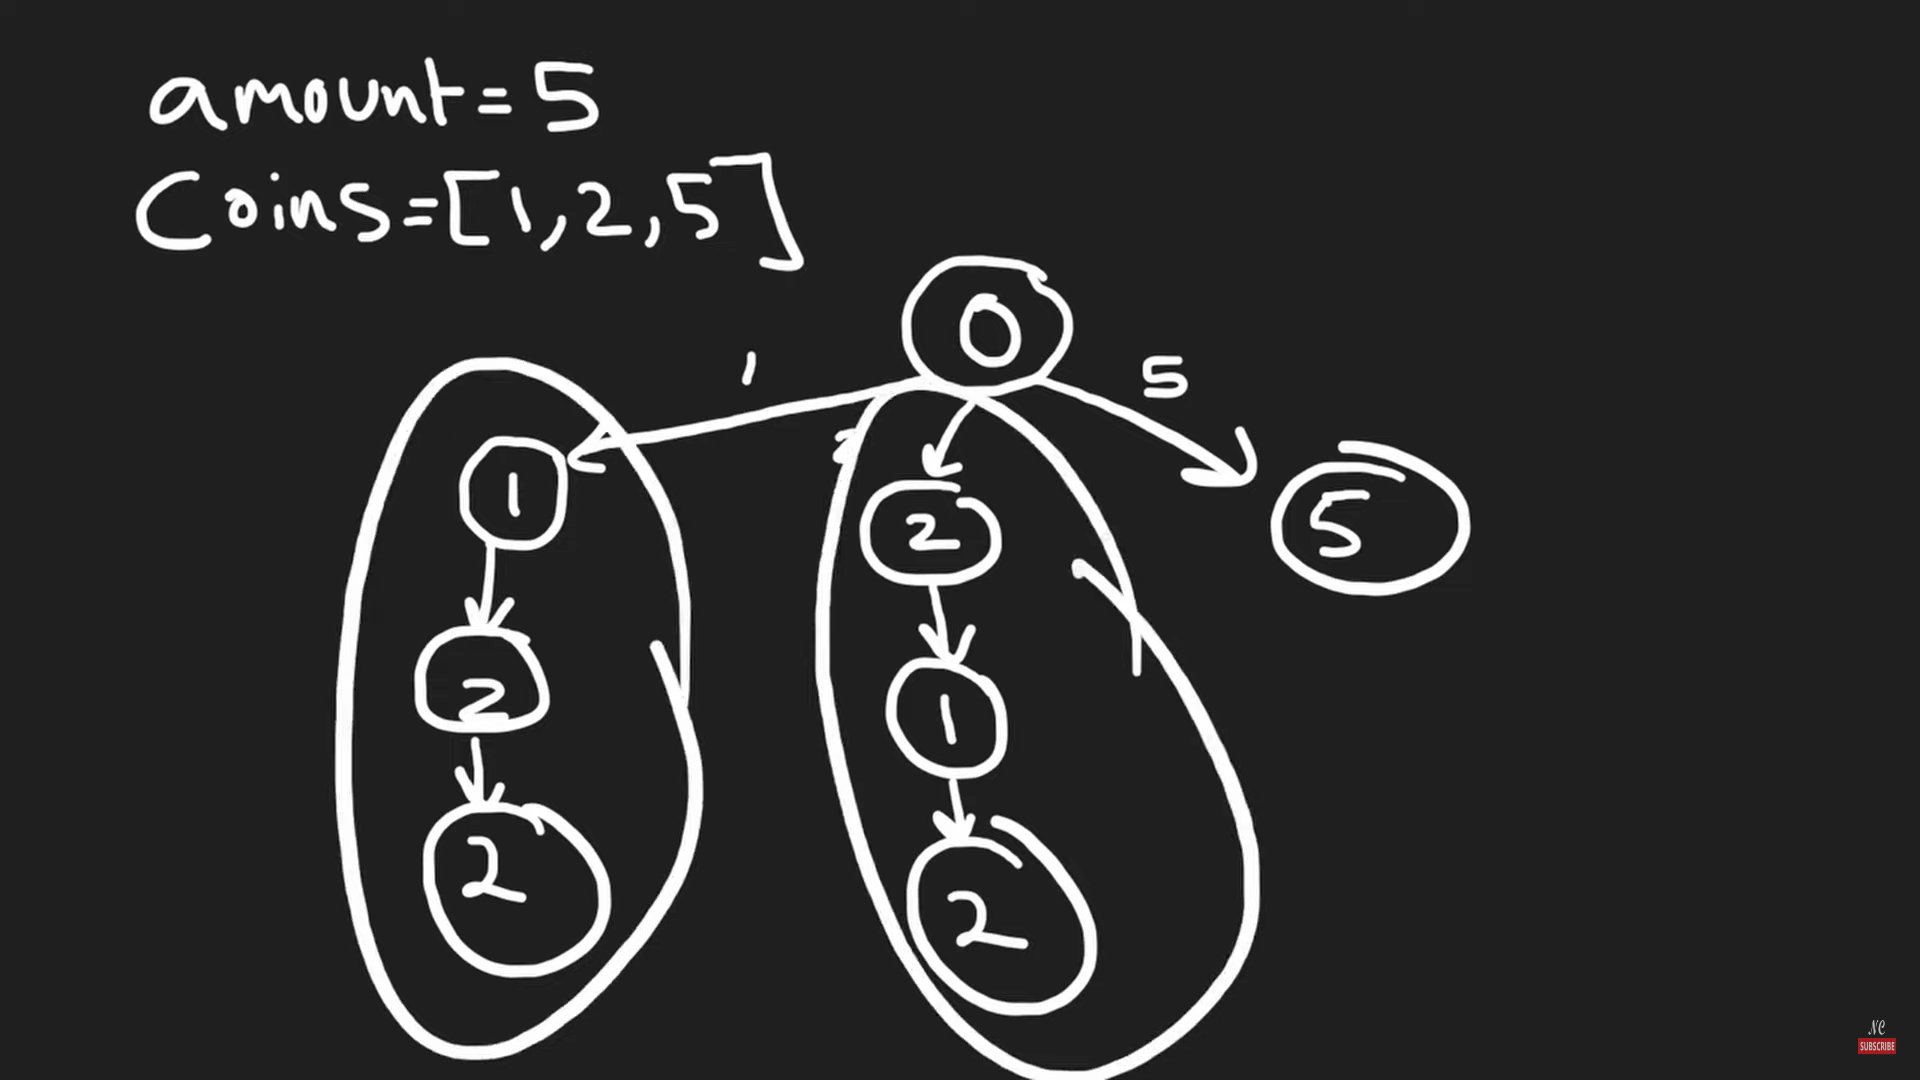 amount=5
Coins=[1,2,5]
0
1
5
2
1
2
5
2
1
2
2
NC
SUBSCRIBE